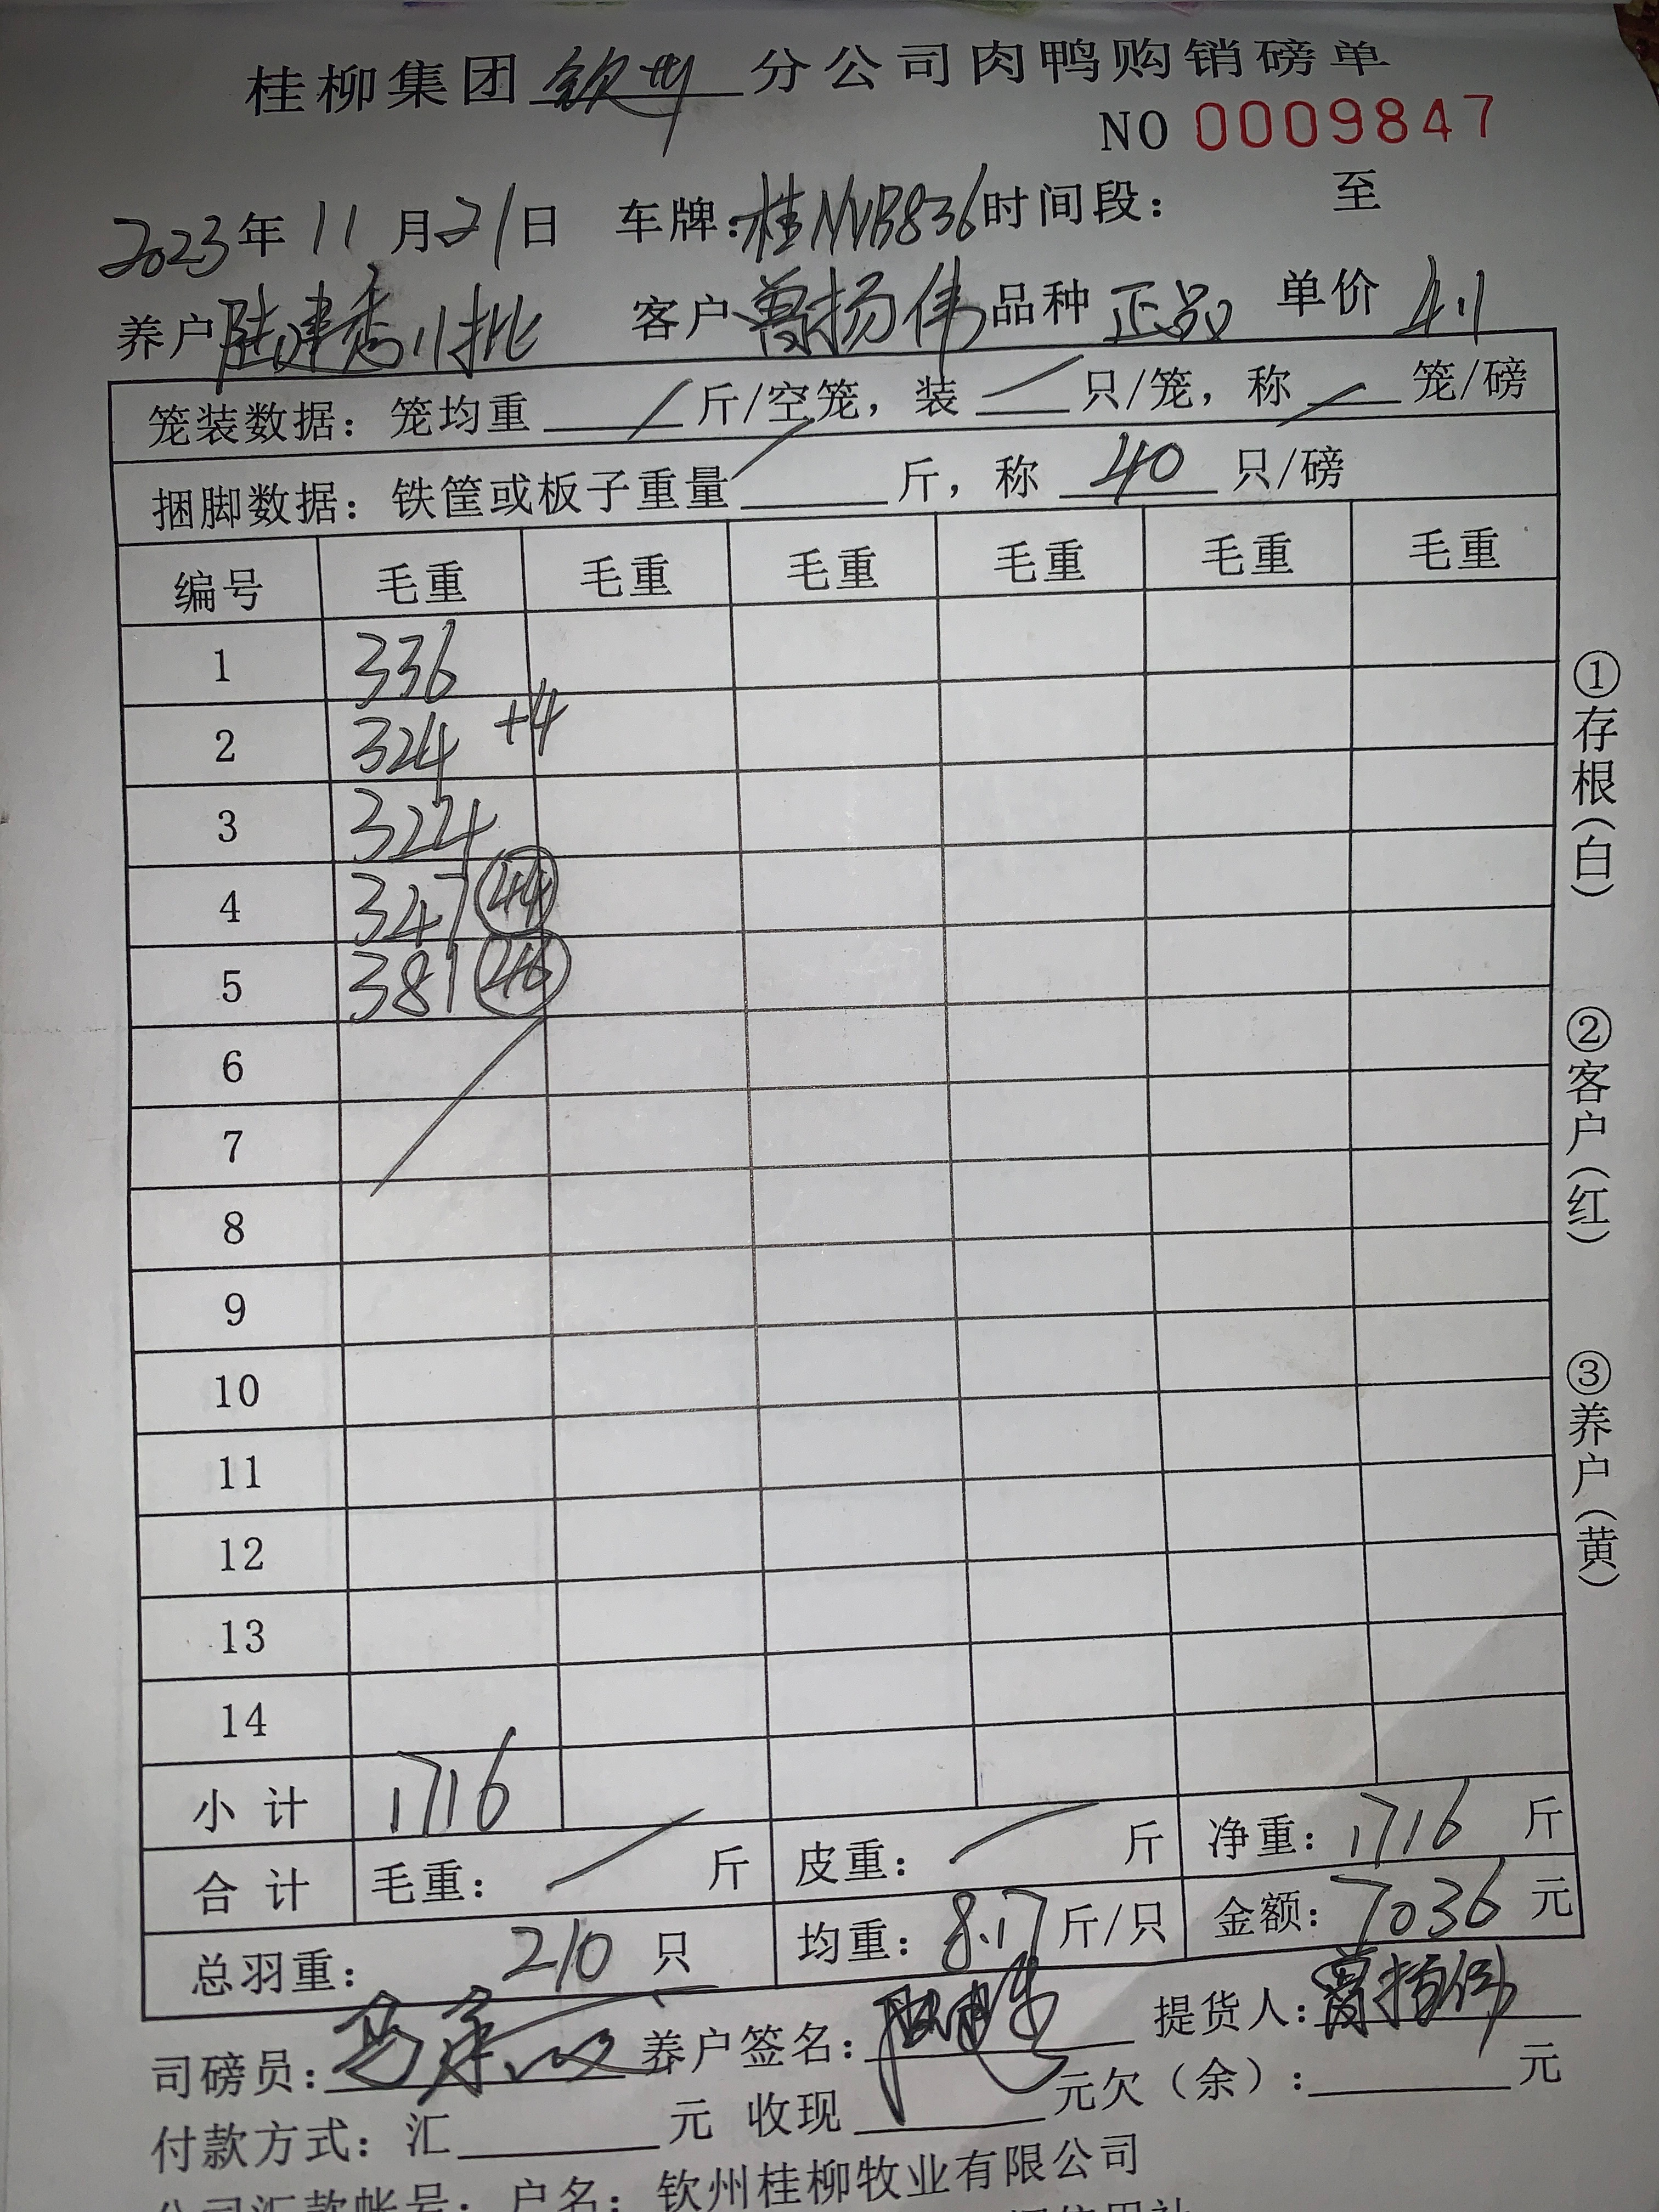 桂柳集团钦州分公司肉鸭购销磅单
NO 0009847
2023年11月21日 车牌:桂NVB836时间段: 至
养户陆建秀11批 客户曾扬伟品种正品 单价4.1
笼装数据:笼均重 / 斤/空笼,装 / 只/笼,称 / 笼/磅
捆脚数据:铁筐或板子重量 / 斤,称 40 只/磅
编号 毛重 毛重 毛重 毛重 毛重 毛重
1 336
2 324 +4
3 324
4 347 (44)
5 381 (46)
6
7
8
9
10
11
12
13
14
小计 1716
合计 毛重: / 斤 皮重: / 斤 净重:1716 斤
总羽重: 210 只 均重:8.17斤/只 金额:7036元
司磅员: 养户签名: 提货人:曾扬伟
付款方式:汇 元 收现 元欠(余): 元
公司汇款帐号:户名:钦州桂柳牧业有限公司
①存根(白)
②客户(红)
③养户(黄)